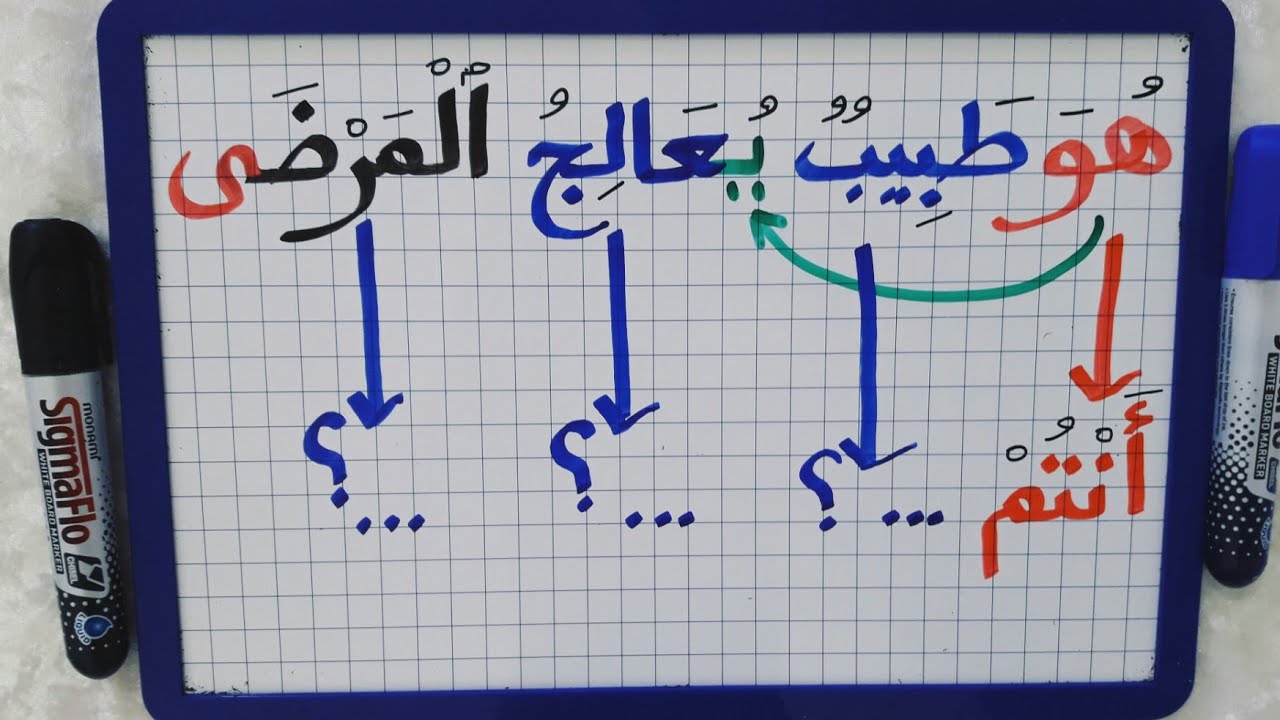 هُوَ طَبِيبٌ يُعَالِجُ ٱلْمَرْضَى
أَنْتُمْ ...؟ ...؟ ...؟
monami
SigmaFlo
WHITE BOARD MARKER
WHITE BOARD MARKER